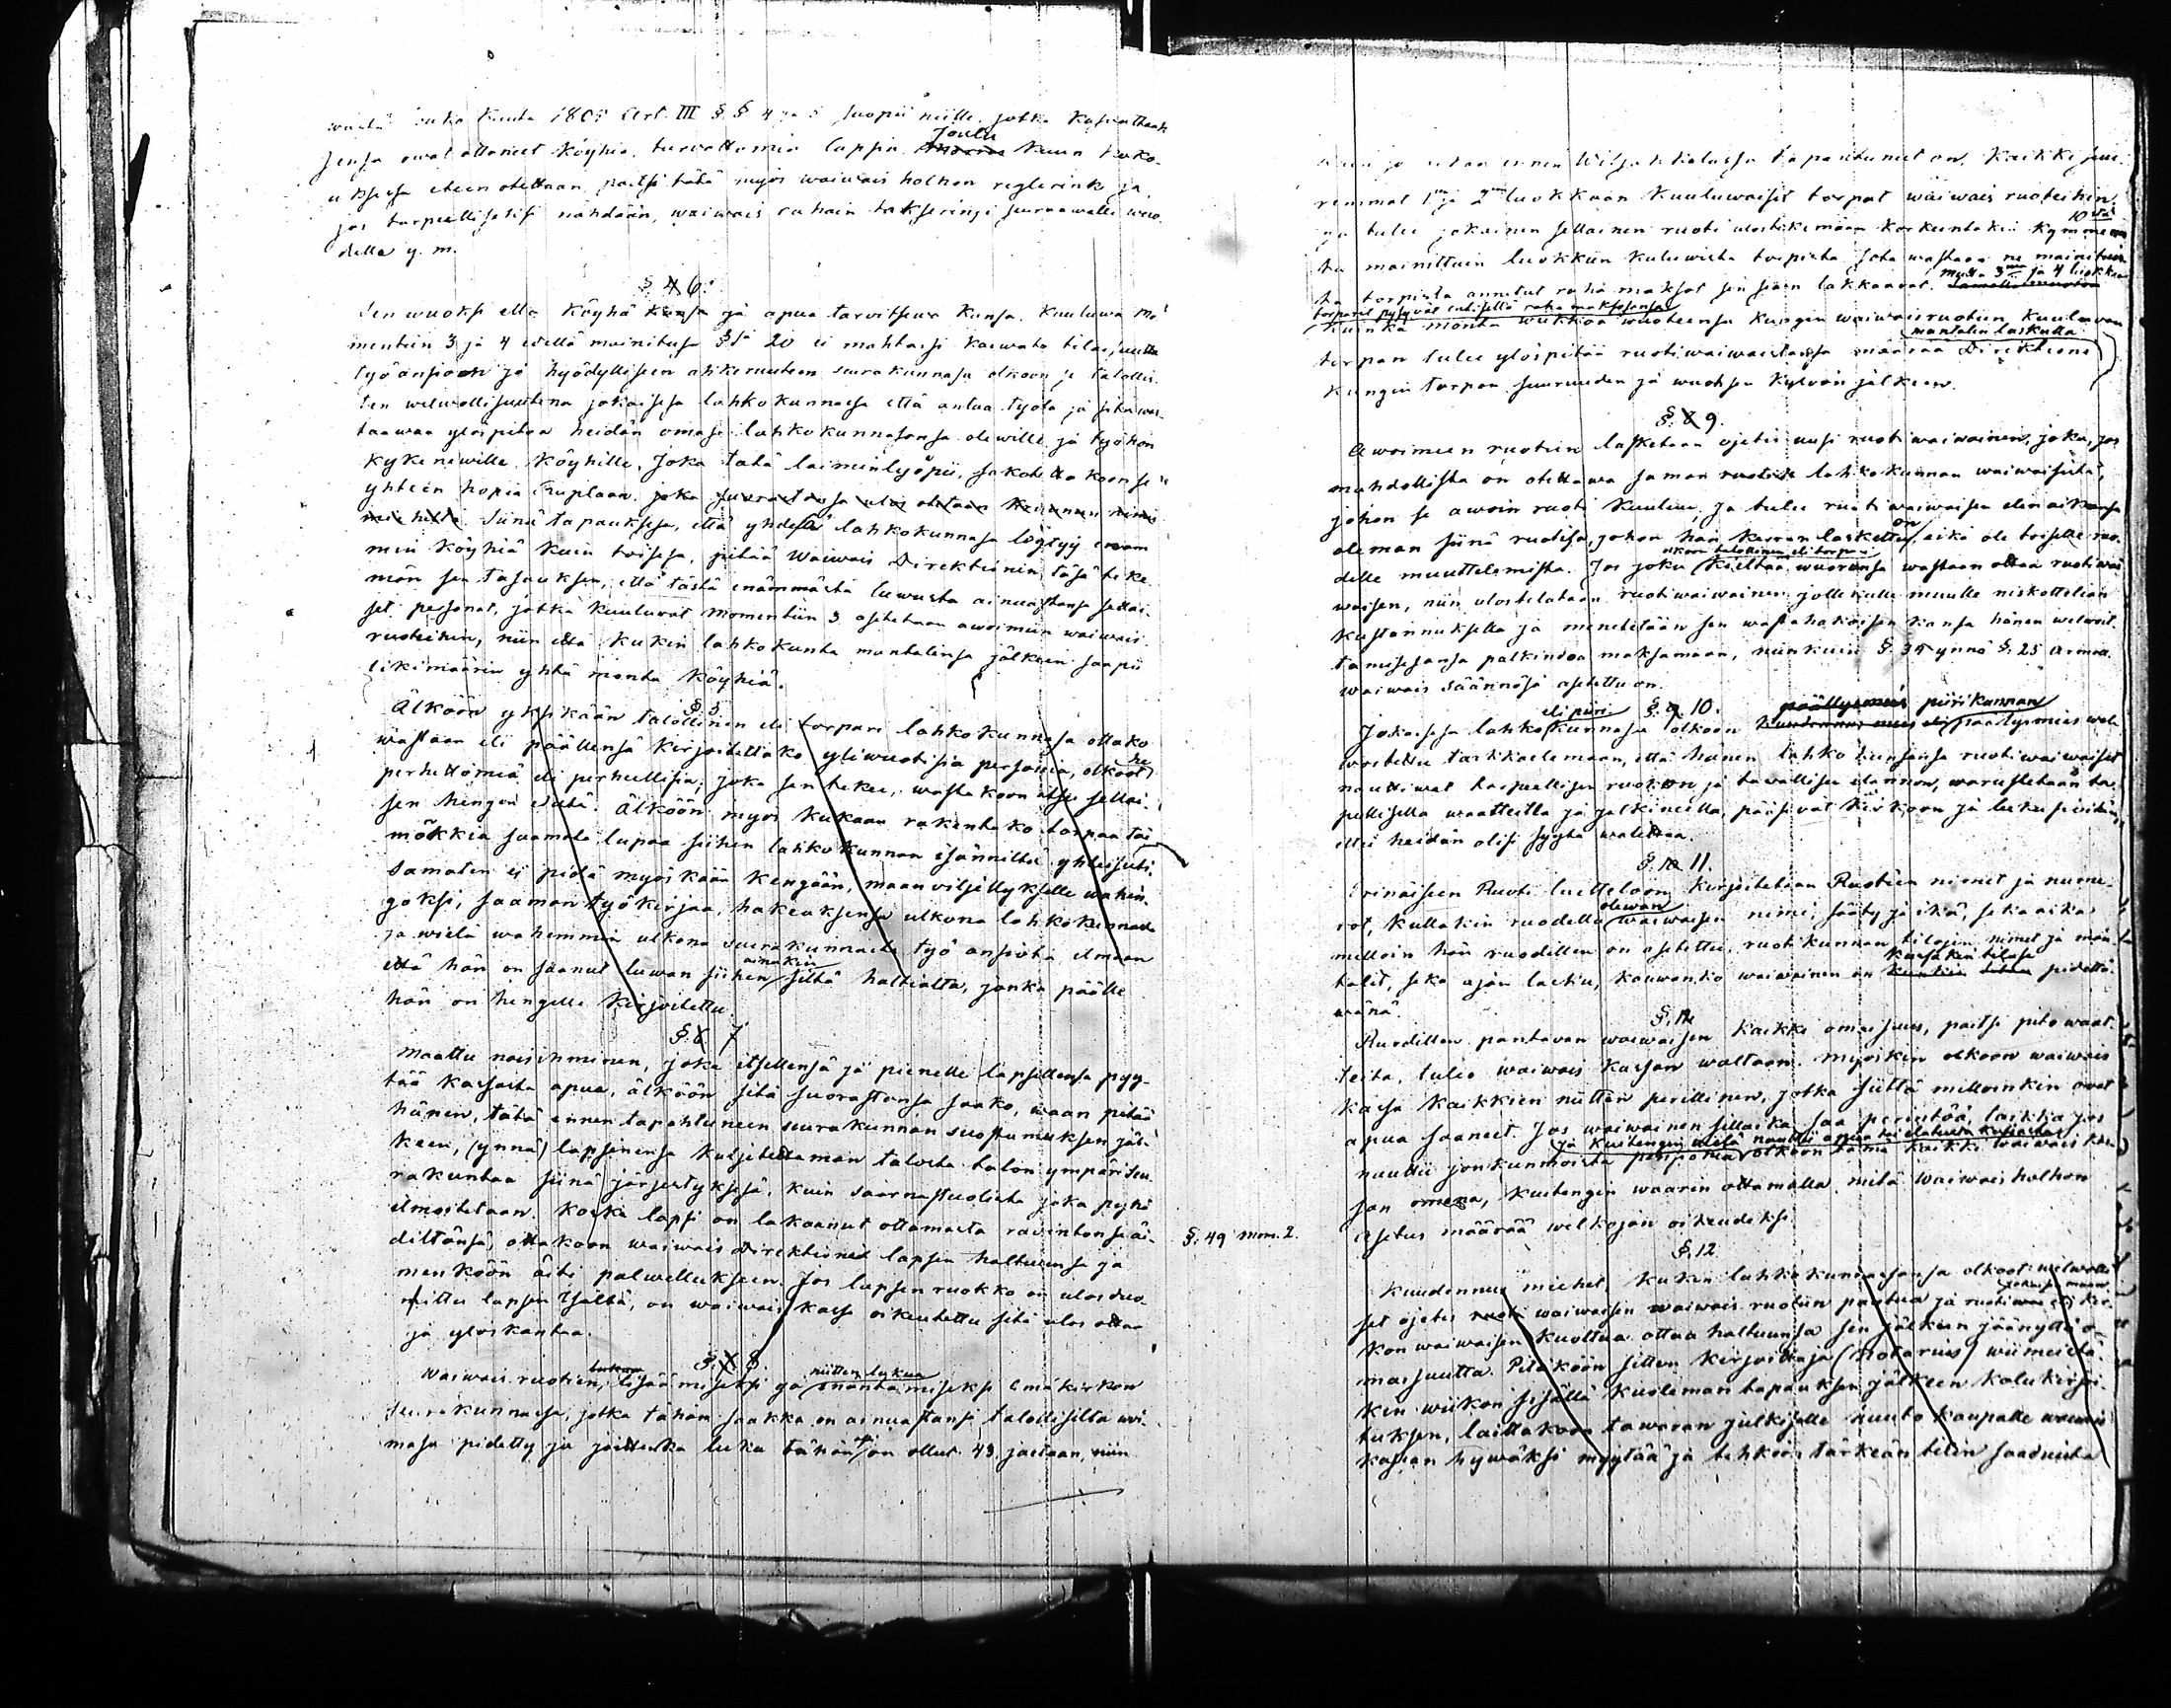 kuuta 1807 Art. III § § 4 ja 5 suopii niille, jotka kasvattaak
senja owat ottaneet köyhiä, turvattomia lapsia Joulu kuun koko-
uksessa eteen otettaan paitsi tätä myös waiwais holhon reglerink ja
jos tarpeellisesti nähdään, waiwais rahain takseringi seuraawalle wuo
delle y. m.
§ 4 6.
Sen wuoksi että köyhä ja apua tarvitsewa kansa, kuuluwa mo
mentein 3 ja 4 edellä mainitusa § 20 ei mahtaisi kaiwata tilaisuutta
työansioon ja hyödylliseen askerruteen seurakunnasa olkoon se talollis-
ten welwollisuutena jokaisesa lahkokunnassa että antaa työtä ja sitä was-
taawaa ylöspitoa heidän omasa lahkokunnasansa olewille ja työhön
kykenewille köyhille. Joka tätä laiminlyöpii, sakotettakoon se
yhteen hopia Ruplaan, joka
Siinä tapauksesa, että yhdesä lahkokunnasa löytyy enem
min köyhiä kuin toisesa, pitää Waiwais Direktionin täsä teke
män sen tasauksen, että tästä enämmästä luwusta ainuastansa sellai-
set personat, jotka kuuluvat momentiin 3 asetetaan awoimiin waiwais
ruoteihin, niin että kukin lahkokunta mantalinsa jälkeen saapii
likimäärin yhtä monta köyhiä.
§ 5
Älköön yksikään talollinen eli torpari lahkokunnasa ottako
wastaan eli päällensä kirjoitettako yliwuotisia personia, olkoot he
perhettömiä eli perheellisiä; joka sen tekee, wastakoon itse sellai-
sen hengen edestä. Älköön myös kukaan rakentako torpaa tai
mökkiä saamata lupaa siihen lahkokunnan isänniltä yhteisesti.
Samaten ei pidä myöskään kengään, maanviljellykselle wahin-
goksi, saaman työkirjaa, hakeaksensa ulkona lahkokunnan
ja wielä wahemmin ulkona seurakunnasta työ ansiota ilman
että hän on saanut luwan siihen ainakin siltä haltialta, jonka päälle
hän on hengelle kirjoitettu.
§ 6 7
Maattu naisihminen, joka itsellensä ja pienelle lapsellensa pyy-
tää kassasta apua, älköön sitä suorastansa saako, waan pitää
hänen, tätä ennen tapahtuneen seurakunnan suostumuksen jäl-
keen, (ynnä) lapsinensa kuljetettaman talosta talon ympäri seu-
rakuntaa siinä järjestyksesä, kuin saarnastuolista joka pyhä
ilmoitetaan. Koska lapsi on lakaanut ottamasta ravintonsa äi-
diltänsä, ottakoon waiwais Direktioni lapsen haltuunsa ja
menköön äiti palwellukseen. Jos lapsen ruokko on ulosduo-
mittu lapsen Isältä, on waiwais kassa oikeutettu sitä ulos ottaa
ja yloskantaa.
§ 7 8.
Waiwais ruotien, lisäämiseksi ja niitten lukua enäntämiseksi emäkirkon
Seurakunnassa, jotka tähän saakka on ainuastansa talollisilta woi-
masa pidetty ja joittenka luku tähän asti on ollut 43, jaetaan, niin
kuin jo ennen Wilsakkalassa tapahtunut on, kaikki suu-
remmat 1:n ja 2:n luokkaan kuuluwaiset torpat waiwais ruoteihin,
ja tulee jokainen sellainen ruoti ulostekemään korkeintakin kymmenen 10stä
tä mainittuin luokkiin kuluwista torpista, jota wastaan ne mainituis-
ta torpista annetut raha maksot sen siaan lakkaavat. Mutta 3:n ja 4 luokkaan
torparit pysywät entisellä raha maksossansa
Kuinka monta wiikkoa wuoteensa kungin waiwaisruotiin kuuluvan
torpan tulee ylöspitää ruotiwaiwaistansa määrää Direktioni mantalin laskulla
kungin torpan suuruuden ja wuotisen kylwön jälkeen.
§. 8 9.
Awoimeen ruotiin lasketaan ojetis uusi ruotiwaiwainen, joka, jos
mahdollista on otettawa saman lahkokunnan waiwaisista,
johon se awoin ruoti kuuluu, ja tulee ruotiwaiwaisen elinaikansa
oleman siinä ruotisa, johon hän kerran laskettu on, eikä ole toiselle ruo-
delle muuttelemista. Jos joku olkoon talollinen eli torpari kieltää wuoronsa wastaan ottaa ruotiwai
waisen, niin ulostelataan ruotiwaiwainen jollekulle muulle niskottelian
kustannuksella ja menetetään sen wastahakoisen kansa hänen welwoit-
tamisesansa palkintoa maksamaan, niinkuin §. 34 ynnä §. 25 armol.
waiwais säännösä asetettu on.
§. 9 10.
Jokaisesa lahko eli piiri kunnasa olkoon piirikunnan päällysmies wel-
woitettu tarkkaelemaan, että hänen lahko kunsansa ruotiwaiwaiset
nauttiwat tarpeellisen ruokon ja tawallisen elannon, warustetaan tar-
pellisella waatteilla ja jalkineilla, pääsevät kirkoon ja lukusioihin,
ettei heidän olisi syytä walittaa.
§. 10 11.
Erinäiseen Ruoti luetteloon kirjoitetaan Ruotien nimet ja nume-
rot, kullakin ruodella olewan waiwaisen nimi, sääty ja ikä, sekä aika
milloin hän ruodillen on asetettu, ruotikunnan tilojen nimet ja man-
talit, sekä ajan lasku, kauwanko waiwainen on kussakin tilasa pidettä-
wänä.
§. 12
Ruodillen pantavan waiwaisen kaikki omaisuus, paitsi pitowaat-
teita, tulee waiwais kassan waltaan. Myöskin olkoon waiwais
kassa kaikkien niitten perillinen, jotka siittä milloinkin ovat
apua saaneet. Jos waiwainen sillaika saa perintöä taikka jos
nauttii jonkunmoista pensionia ja kuitengin wielä nauttii apua tai elatusta kassasta olkoon tämä kaikki waiwais kas-
san omena, kuitengin waarin ottamalla mitä waiwaisholhon
Asetus määrää welkojan oikeudeksi.
§. 49 mom. 2.
§. 12
Kuudennus miehet, kukin lahkokunnassansa olkoot welwolli-
set ojetis waiwaisen waiwais ruotiin pantua ja ruoti
kon waiwaisen kuoltua ottaa haltuunsa sen jälkeen jäänyttä o-
maisuutta. Pitäköön sitten Kirjoittaja (Notarius) wiimeistä-
kin wiikon sisällä kuoleman tapauksen jälkeen kalukirjoi-
tuksen, laittakoon tawaran julkiselle huuto kaupalle waiwais
kassan hywäksi myytää ja tehköön tärkeän tilin saaduista